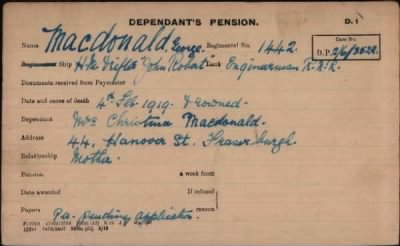 DEPENDANT'S PENSION.
D. 1
Name Macdonald, George. Regimental No. 1442.
Case No.
D.P. 2/6/3528.
Ship H.M Drifter "John Robert" Rank Engineman R.N.R.
Documents received from Paymaster
Date and cause of death 4th Feb. 1919. Drowned.
Dependant Mrs Christina Macdonald.
Address 44, Hanover St. Fraserburgh.
Relationship Mother.
Pension a week from
Date awarded If refused
Papers reason
Pa. pending application.